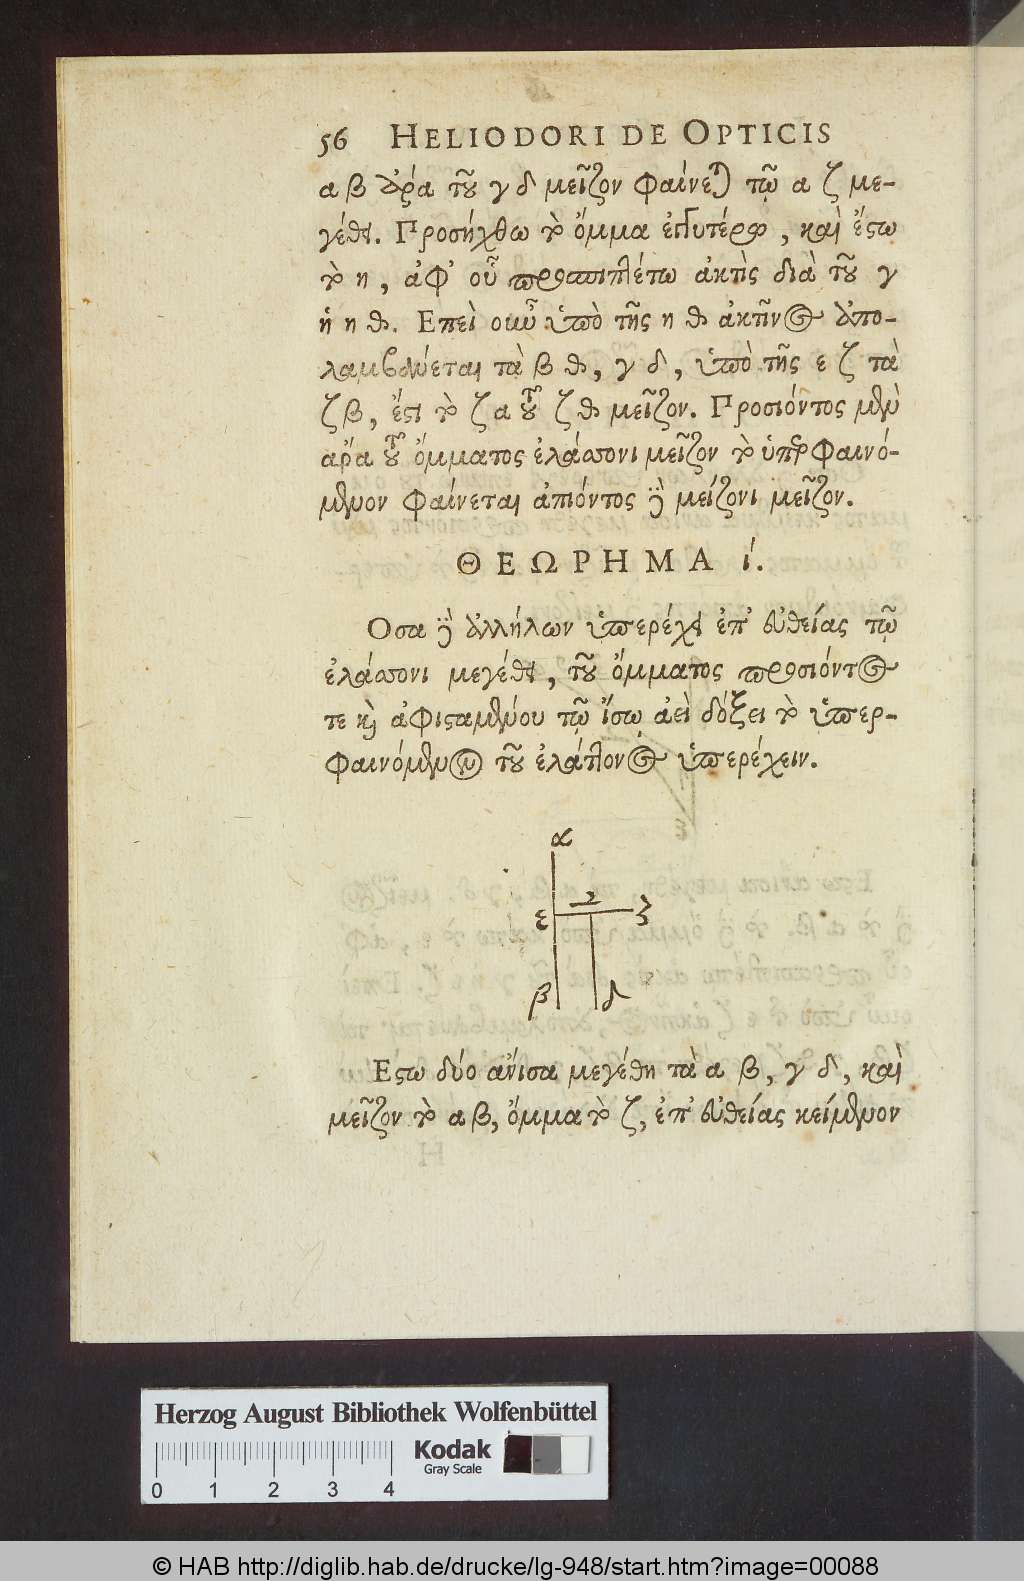 56 HELIODORI DE OPTICIS
α β ἄρα τοῦ γ δ μεῖζον φαίνεται τῷ α ζ με-
γέθει. Προσήχθω τὸ ὄμμα ἐγγυτέρω, καὶ ἔστω
τὸ η, ἀφ' οὗ προσπιπλέτω ἀκτὶς διὰ τοῦ γ
ἡ η θ. Επεὶ οὖν ὑπὸ τῆς η θ ἀκτῖνος ἀπο-
λαμβανεται τὰ β θ, γ δ, ὑπὸ τῆς ε ζ τὰ
ζ β, ἐστι τὸ ζ α τοῦ ζ θ μεῖζον. Προσιόντος μὲν
ἄρα τοῦ ὄμματος ἐλάσσονι μεῖζον τὸ ὑπερφαινό-
μενον φαίνεται ἀπιόντος δὲ μείζονι μεῖζον.
ΘΕΩΡΗΜΑ ί.
Οσα δὲ ἀλλήλων ὑπερέχει ἐπ' εὐθείας τῷ
ἐλάσσονι μεγέθει, τοῦ ὄμματος προσιόντος
τε καὶ ἀφισταμένου τῷ ἴσῳ ἀεὶ δόξει τὸ ὑπερ-
φαινόμενον τοῦ ἐλάττονος ὑπερέχειν.
α
γ
ε ζ
β δ
Εστω δύο ἄνισα μεγέθη τὰ α β, γ δ, καὶ
μεῖζον τὸ α β, ὄμμα τὸ ζ, ἐπ' εὐθείας κείμενον
Herzog August Bibliothek Wolfenbüttel
Kodak
Gray Scale
0 1 2 3 4
© HAB http://diglib.hab.de/drucke/lg-948/start.htm?image=00088